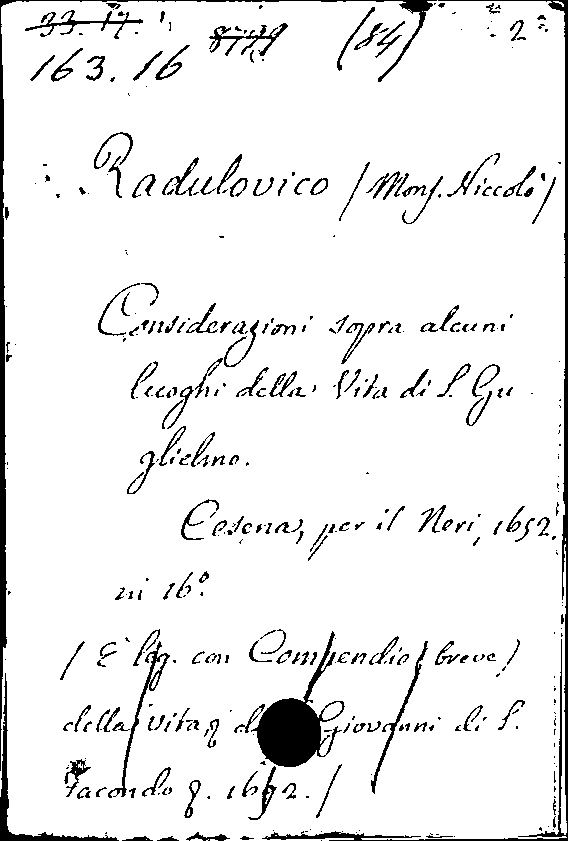 33.17. 8779 (84) 2
163.16
Radulovico / Mons. Niccolò /
Considerazioni sopra alcuni
luoghi della Vita di S. Gu
glielmo.
Cesena, per il Neri, 1652.
in 16°.
/ È leg. con Compendio (breve)
della Vita di Giovanni di S.
Facondo 1692. /